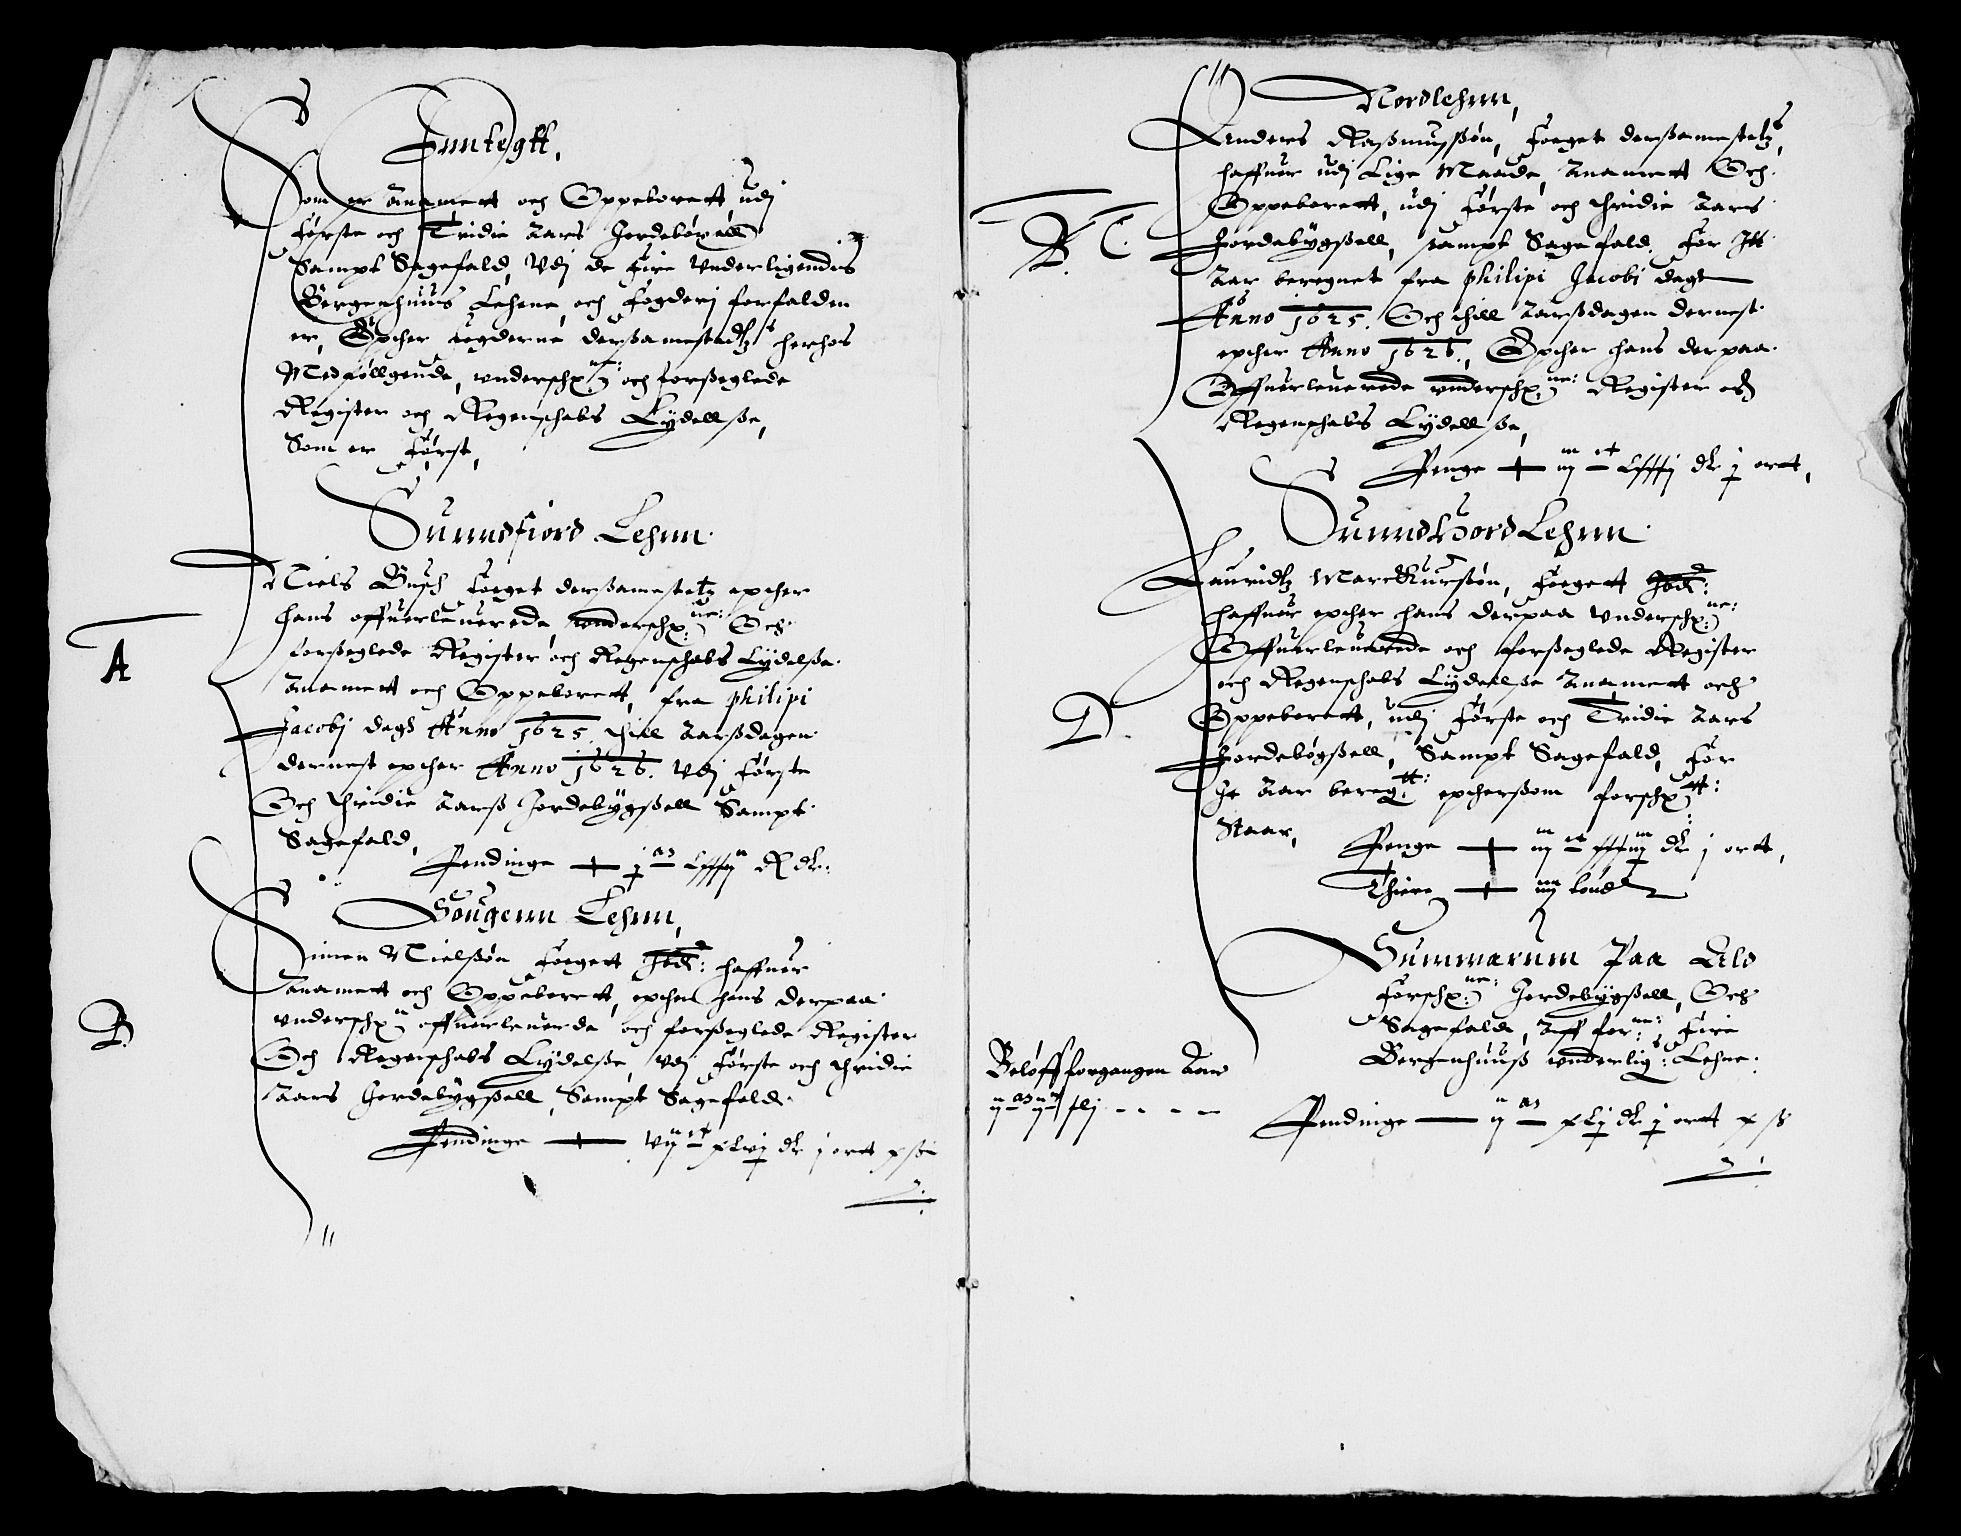 Inntegtt,
Som er Anamett och Oppeborett, udj
Første och Tridie Aars Jordebøxell
Sampt Sagefald, Vdj de Fire Vnderligendis
Bergenhuus Lehene, och Fogderj forfalden
er, Epther fogderne derßamestedtz herhos
Medføllgende, vnderschr: ne: och forßeglede
Register och Regenschabs Lydellße,
Som er Først,
Sunndfiord Lehnn.
A
Niels Busch Foeget derßamestetz epther
hans offuerleuerede, vonderschr: ne: Och
forßeglede Register och Regenschabs Lydelße
Anamett och Oppeborett, fra philipi
Jacobj dags Anno 1625. thill Aarßdagen
dernest epther Anno 1626. Vdj Første
Och thridie Aarß Jordebygßell Sampt
Sagefald,
Pendinge
Sougenn Lehnn,
B.
Simen Nielßøn Foegett Jbd: haffuer
Anamett och Oppeborett, epther hans derpaa
vnderschr: offuerleuerde och forßeglede Register
Och Regenschabs Lydelße, vdj Første och thridie
Aars Jordebygßell, Sampt Sagefald.
Pendinge — vij dlr j ortt x ß
Nordlehnn,
Anders Raßmusßøn, Foeget derßamestetz,
haffuer udj Lige Maade, Anamett Och
Oppeborett, udj Første och thridie Aars
C.
Jordebygßell, sampt Sagefald. For Itt
Aar beregnet fra philipi Jacobi dags
Anno 1625. Och thill Aarßdagen dernest
epther Anno 1626., Epther hans derpaa
Offuerleuerede vnderschr: ne: Register och
Regenschabs Lydellße,
Penge — dlr j ortt,
SunndHord Lehnn
Lauridtz Marckurßøn, Foegett Jbd:
haffuer epther hans derpaa Vnderschr: ne:
Offuerleuerede och forßeglede Register
och Regenschabs Lydelße Anamett och
D.
Oppeborett, udj Første och Tridie Aars
Jordebøgßell, Sampt Sagefald, For
Jt Aar beregt: epthersom forschr: tt:
Staar,
Penge — dlr j ortt,
Thiere — iiij
Summarum Paa Als
Forschr: ne: Jordebygßell, Och
Sagefald, Aff for: ne: Fire
Bergenhuuß vnderligs: Lehne.
Beløff forgangen Aar
Pendinge — xlj dlr j ortt x ß